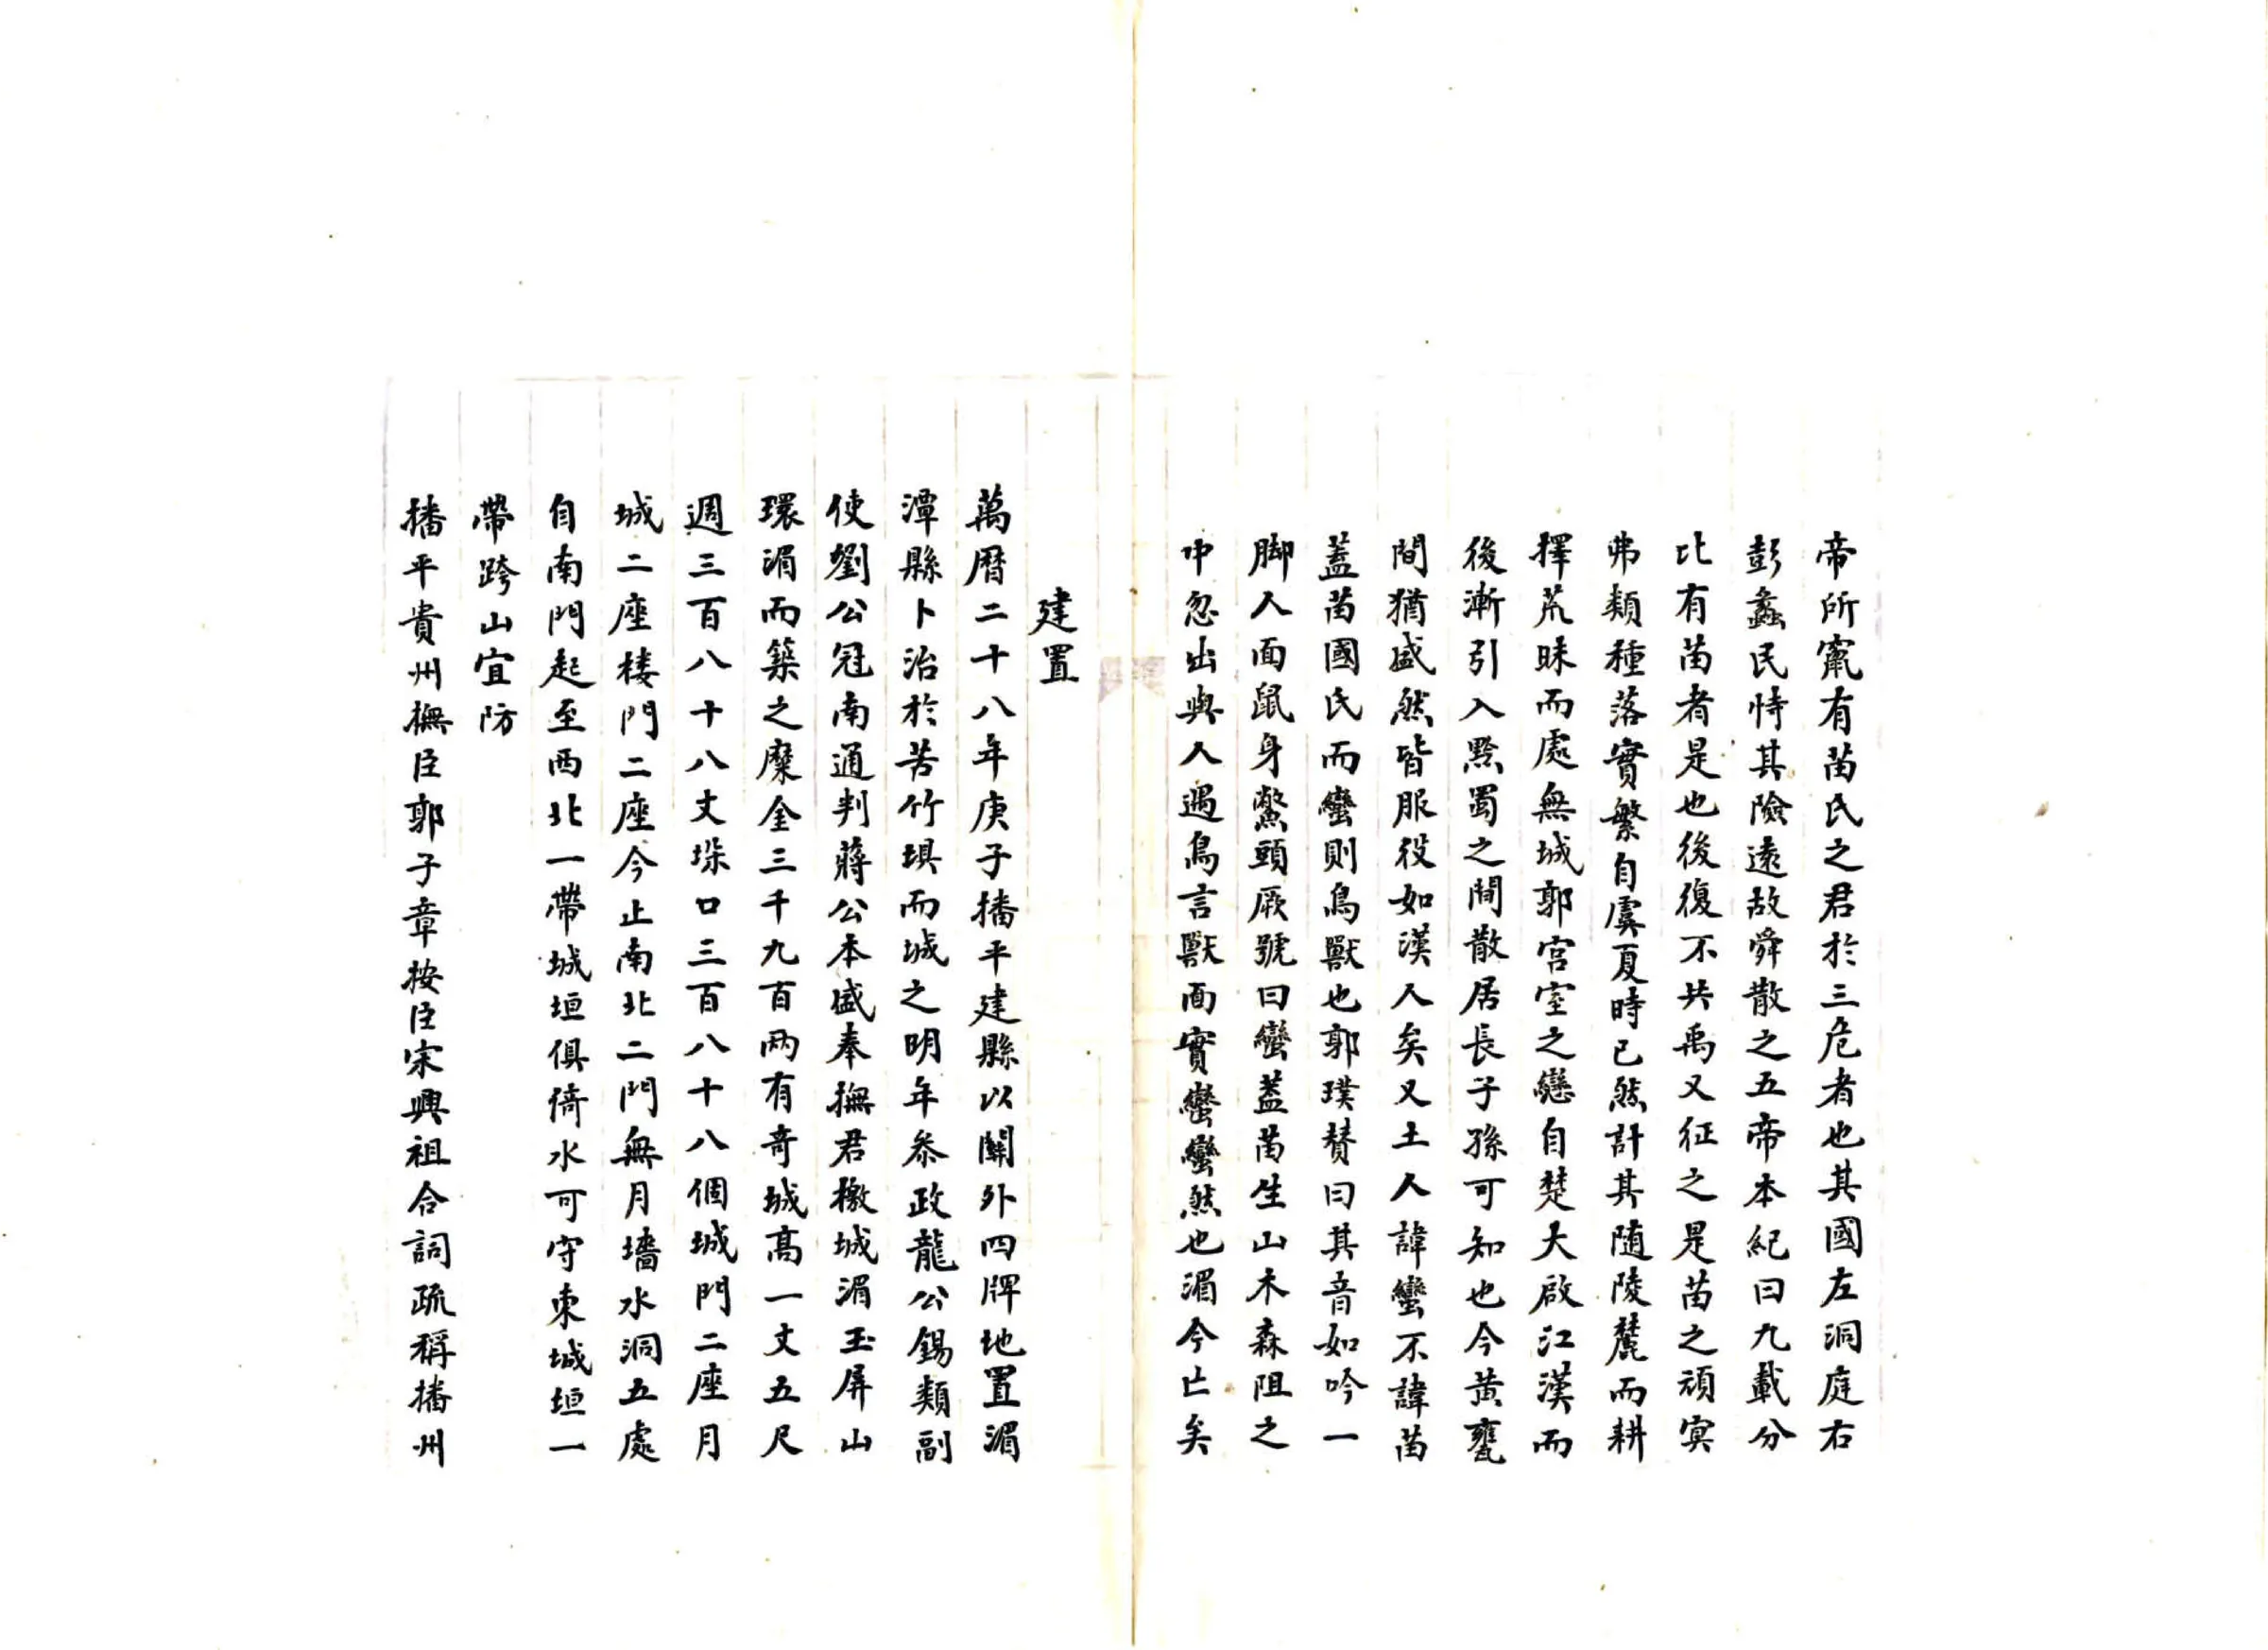 帝所竄有苗氏之君於三危者也其國左洞庭右
彭蠡民恃其險遠故舜散之五帝本紀曰九載分
比有苗者是也後復不共禹又征之是苗之頑冥
弗類種落實繁自虞夏時已然計其随陵麓而耕
擇荒昧而處無城郭宮室之戀自楚大啟江漢而
後漸引入黔蜀之間散居長子孫可知也今黃甕
間猶盛然皆服役如漢人矣又土人諱蠻不諱苗
蓋苗國氏而蠻則鳥獸也郭璞賛曰其音如吟一
脚人面鼠身鱉頭厥號曰蠻葢苗生山木森阻之
中忽出與人遇鳥言獸面實蠻蠻然也湄今亡矣
建置
萬曆二十八年庚子播平建縣以關外四牌地置湄
潭縣卜治於苦竹垻而城之明年叅政龍公錫類副
使劉公冠南通判蔣公本盛奉撫君檄城湄玉屏山
環湄而築之糜金三千九百两有奇城高一丈五尺
週三百八十八丈垛口三百八十八個城門二座月
城二座楼門二座今止南北二門無月墻水洞五處
自南門起至西北一帶城垣俱倚水可守東城垣一
帶跨山宜防
播平貴州撫臣郭子章按臣宋興祖合詞疏稱播州